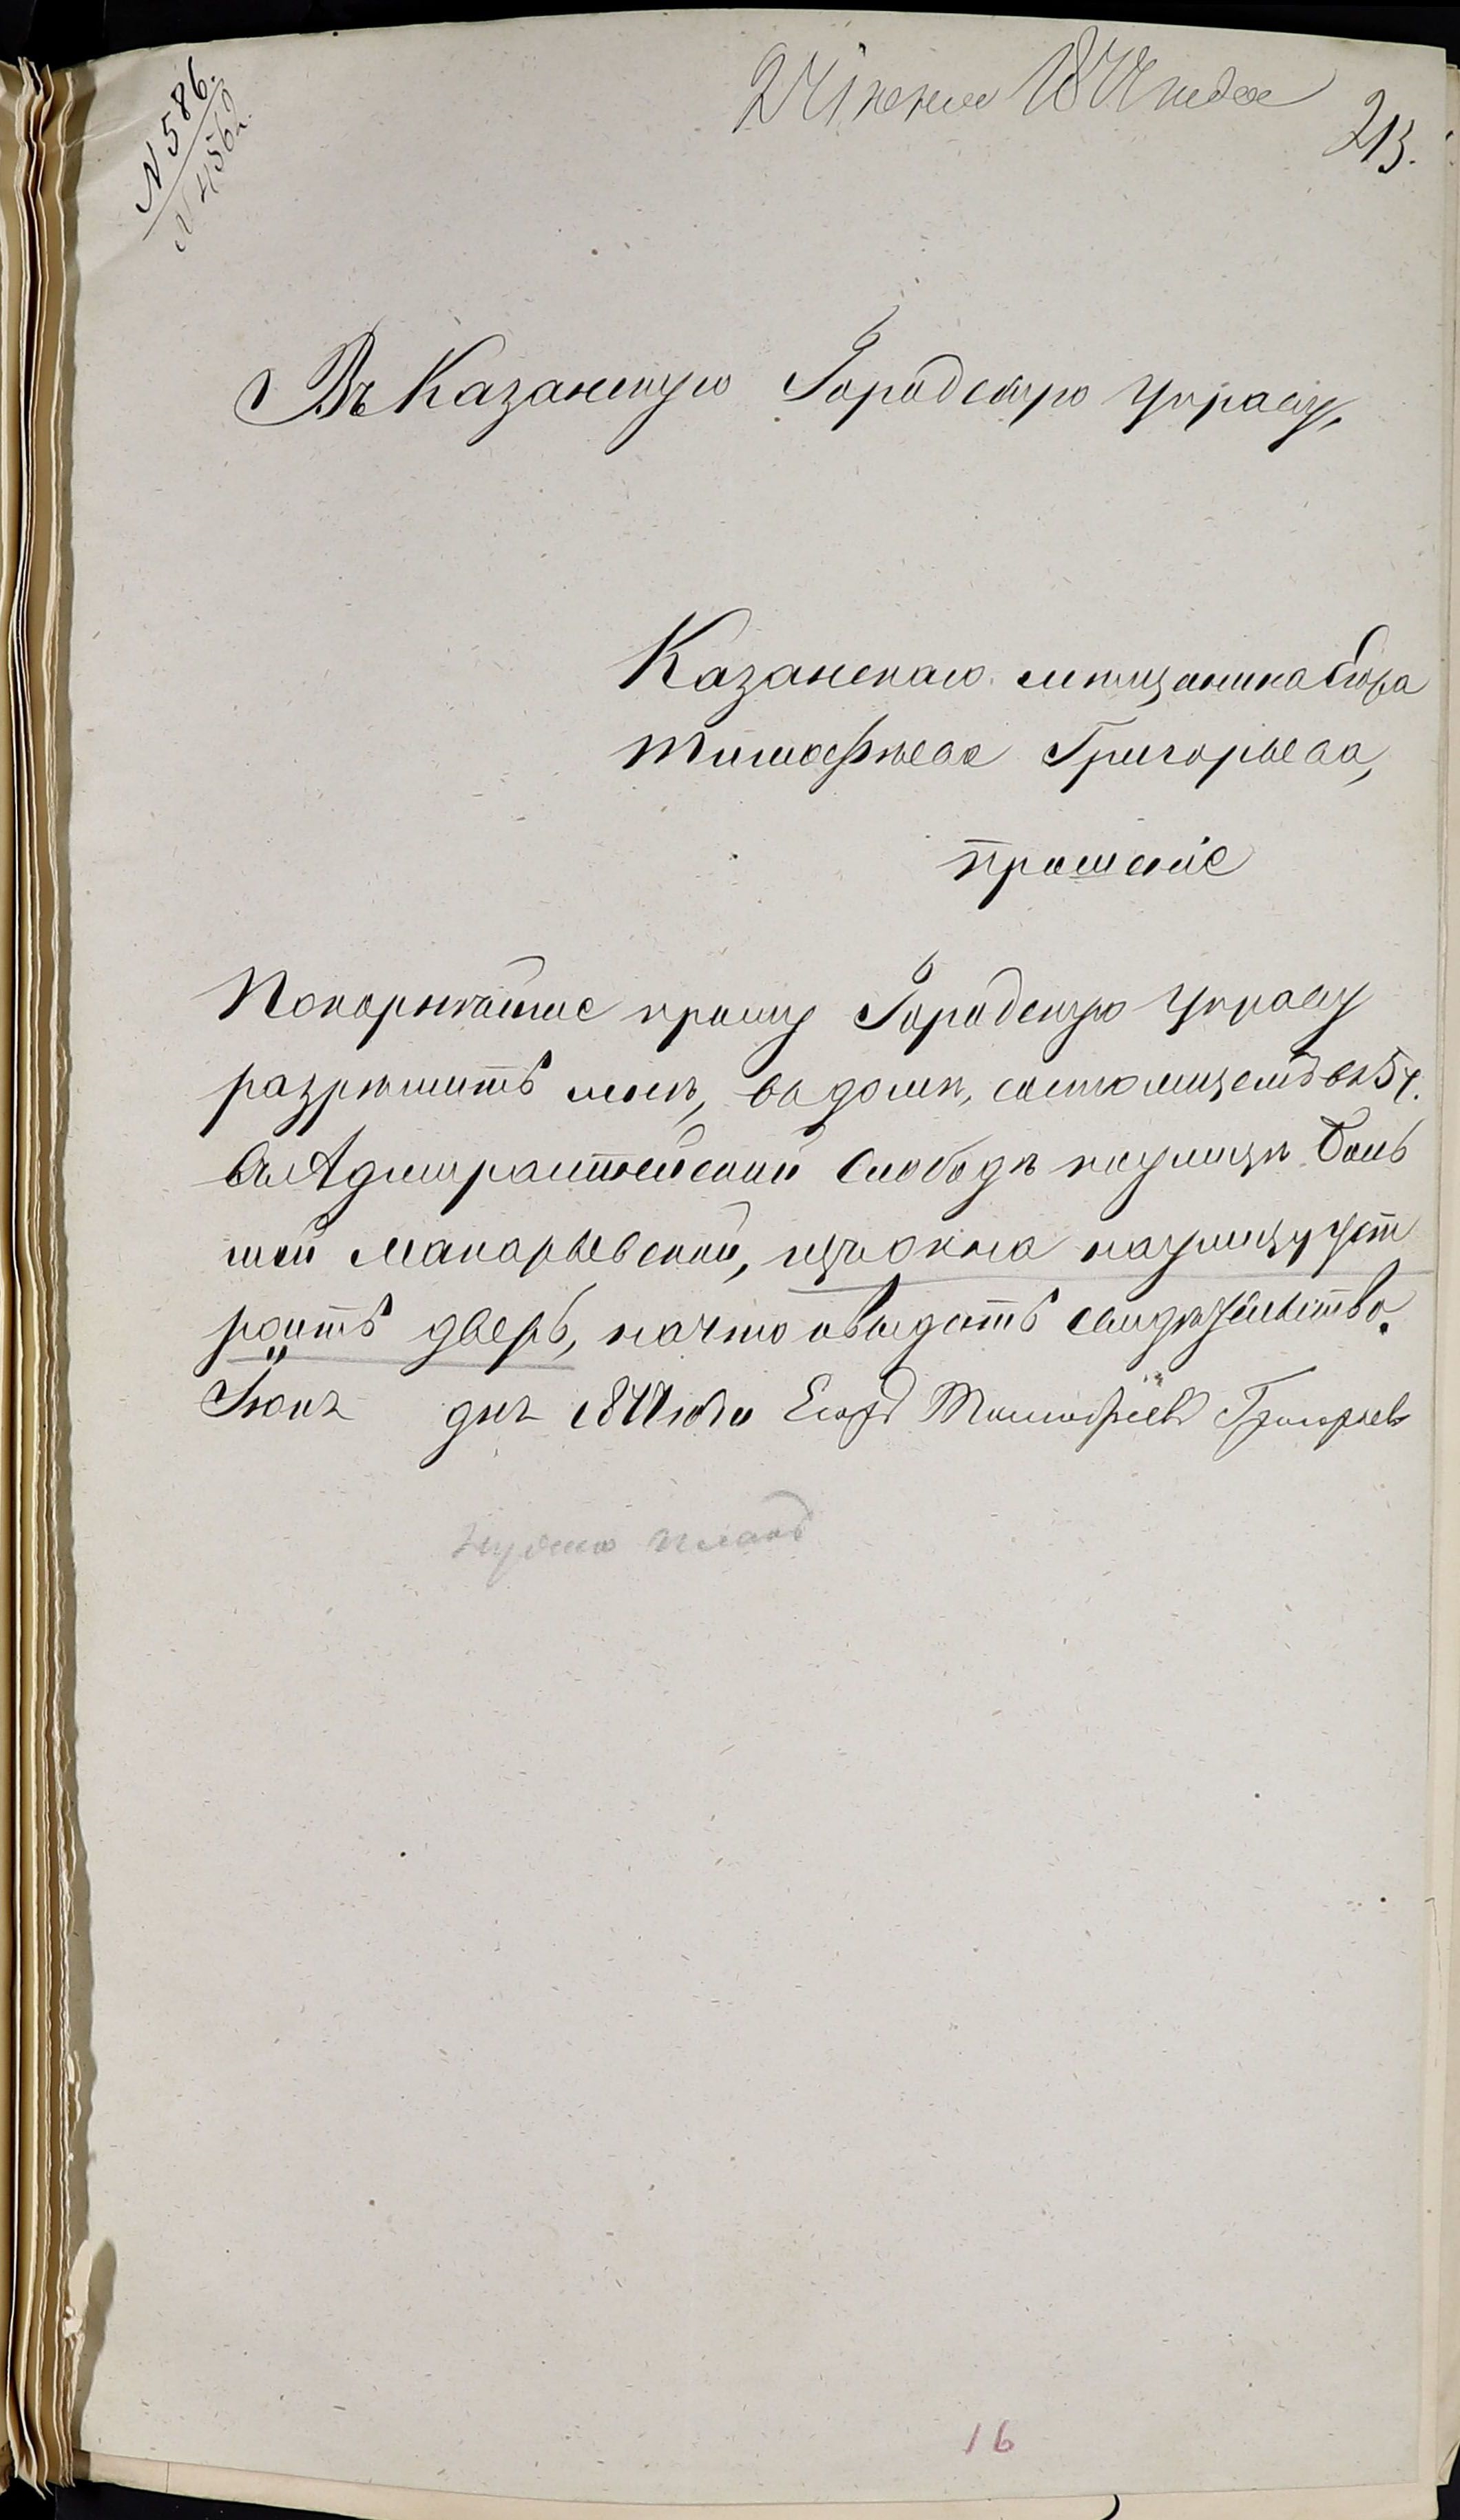 N 586.
N 4562.
24 іюня 1877 года
213.
Въ Казанскую Городскую Управу,
Казанскаго мѣщанина Егора
Тимофѣева Григорьева,
прошеніе
Покорнѣйше прошу Городскую Управу
разрѣшить мнѣ, въ домѣ, состоящемъ въ 5 ч.
въ Адмиралтейской Слободѣ на улицѣ Боль
шой Макарьевской, изъ окна на улицу уст
роить дверь, на что и выдать свидѣтельство.
Іюня " дня 1877 года Егоръ Тимофеевъ Григорьевъ
Нужно планъ
16